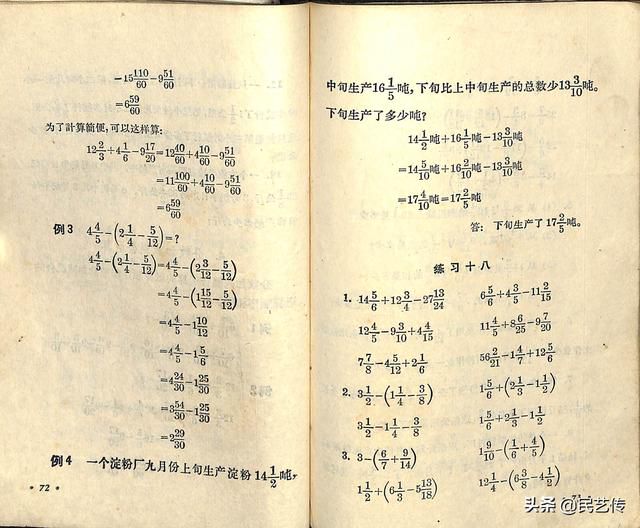 =15 110/60 - 9 51/60
=6 59/60
为了計算簡便,可以这样算:
12 2/3 + 4 1/6 - 9 17/20 = 12 40/60 + 4 10/60 - 9 51/60
=11 100/60 + 4 10/60 - 9 51/60
=6 59/60
例3 4 4/5 - (2 1/4 - 5/12) = ?
4 4/5 - (2 1/4 - 5/12) = 4 4/5 - (2 3/12 - 5/12)
=4 4/5 - (1 15/12 - 5/12)
=4 4/5 - 1 10/12
=4 4/5 - 1 5/6
=4 24/30 - 1 25/30
=3 54/30 - 1 25/30
=2 29/30
例4 一个淀粉厂九月份上旬生产淀粉 14 1/2 吨,
• 72 •
中旬生产16 1/5 吨,下旬比上中旬生产的总数少13 3/10 吨。
下旬生产了多少吨?
14 1/2 吨+16 1/5 吨-13 3/10 吨
=14 5/10 吨+16 2/10 吨-13 3/10 吨
=17 4/10 吨=17 2/5 吨
答: 下旬生产了 17 2/5 吨。
练习十八
1. 14 5/6 + 12 3/4 - 27 13/24 6 5/6 + 4 3/5 - 11 2/15
12 4/5 - 9 3/10 + 4 4/15 11 4/5 + 8 6/25 - 9 7/20
7 7/8 - 4 5/12 + 2 1/6 56 2/21 - 1 4/7 + 12 5/6
2. 3 1/2 - (1 1/4 - 3/8) 1 5/6 + (2 1/3 - 1 1/2)
3 1/2 - 1 1/4 - 3/8 1 5/6 + 2 1/3 - 1 1/2
3. 3 - (6/7 + 9/14) 1 9/10 - (1/6 + 4/5)
1 1/2 + (6 1/3 - 5 13/18) 12 1/4 - (6 3/8 - 4 1/2)
头条 @民艺传